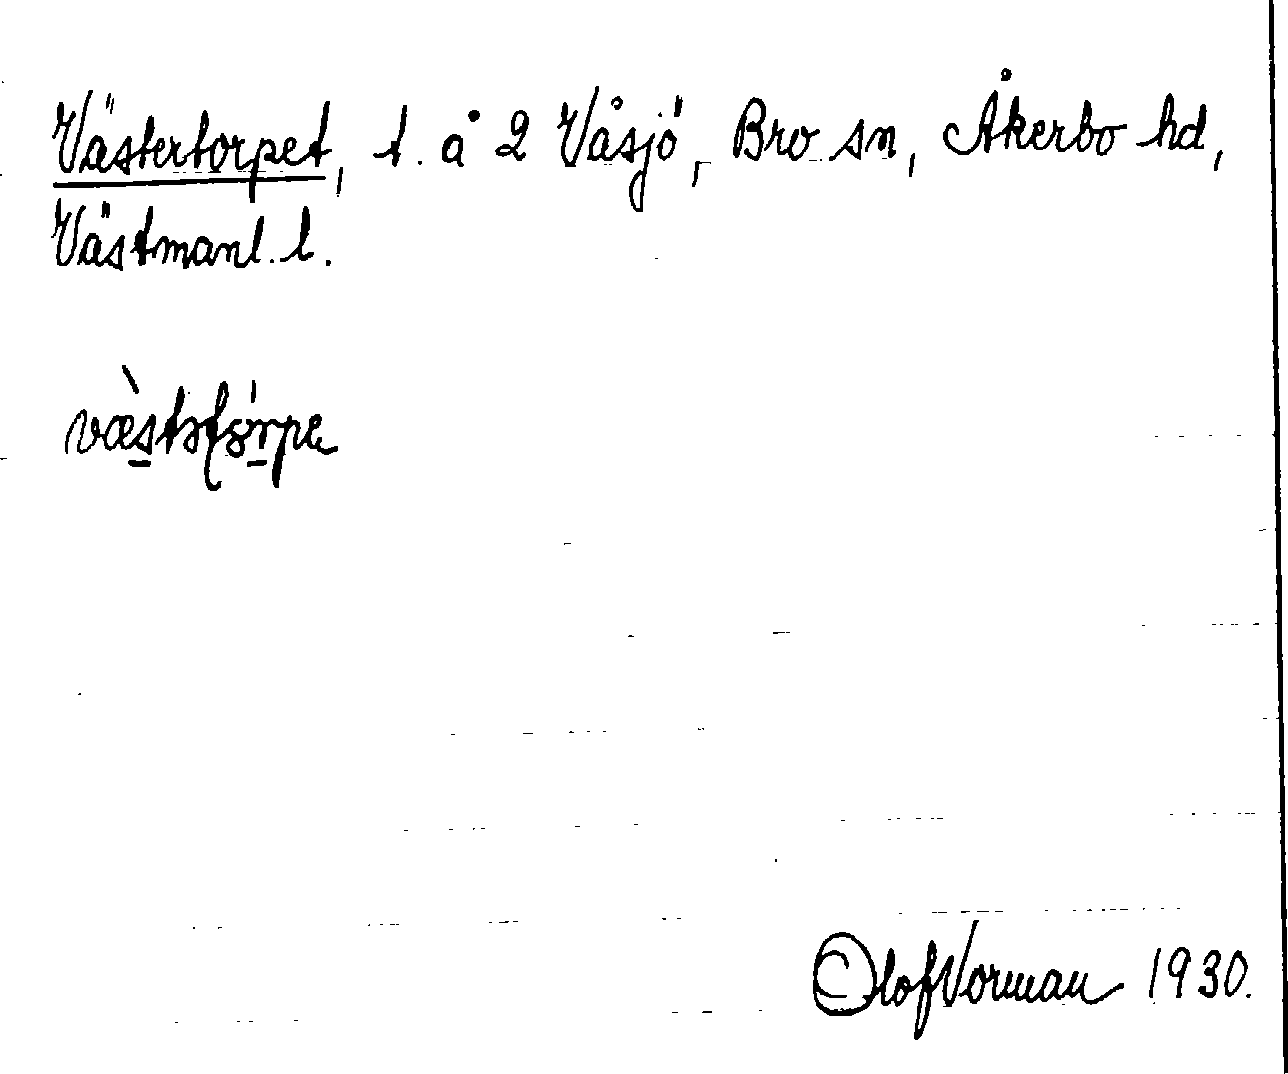 Västertorpet, t. å 2 Våsjö, Bro sn, Åkerbo hd,
Västmanl. l.
Olof Norman 1930.